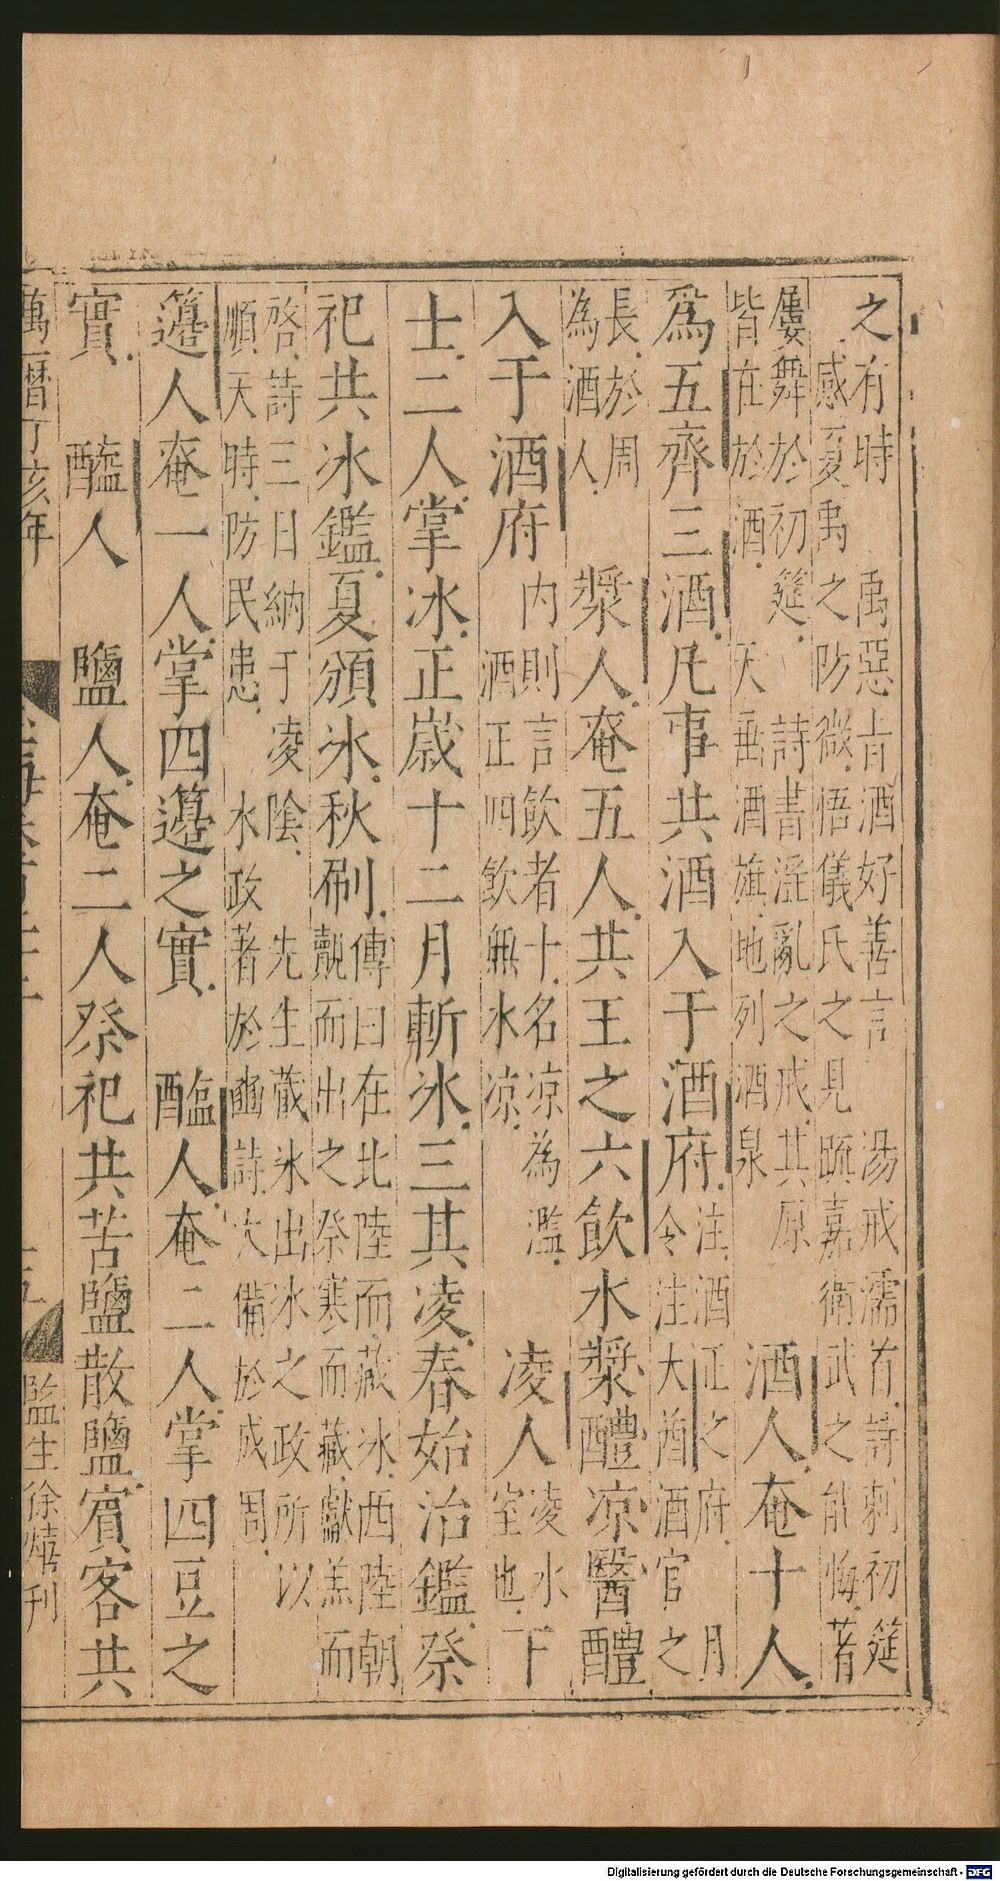 之有時　禹惡旨酒好善言　湯戒濡首詩刺初筵
感夏禹之防微悟儀氏之見踈嘉衛武之能悔著
屢舞於初筵　詩書淫亂之戒其原
皆在於酒　天垂酒旗地列酒泉　酒人奄十人
爲五齊三酒凡事共酒入于酒府注酒正之府　月
令注大酋酒官之
長於周
為酒人　漿人奄五人共王之六飲水漿醴凉醫醴
入于酒府　內則言飲者十名凉為濫
酒正四飲無水凉　凌人凌水
室也　下
士二人掌冰正歲十二月斬冰三其凌春始治鑑祭
祀共冰鑑夏頒冰秋刷傳曰在北陸而藏冰西陸朝
覿而出之祭寒而藏獻羔而
啓詩三日納于凌陰　先生蔵氷出冰之政所以
順天時防民患　水政著於豳詩大備於成周
籩人奄一人掌四籩之實　醢人奄二人掌四豆之
實　醯人　鹽人奄二人祭祀共苦鹽散鹽賓客共
萬曆丁亥年
監生徐熺刊
Digitalisierung gefördert durch die Deutsche Forschungsgemeinschaft - DFG